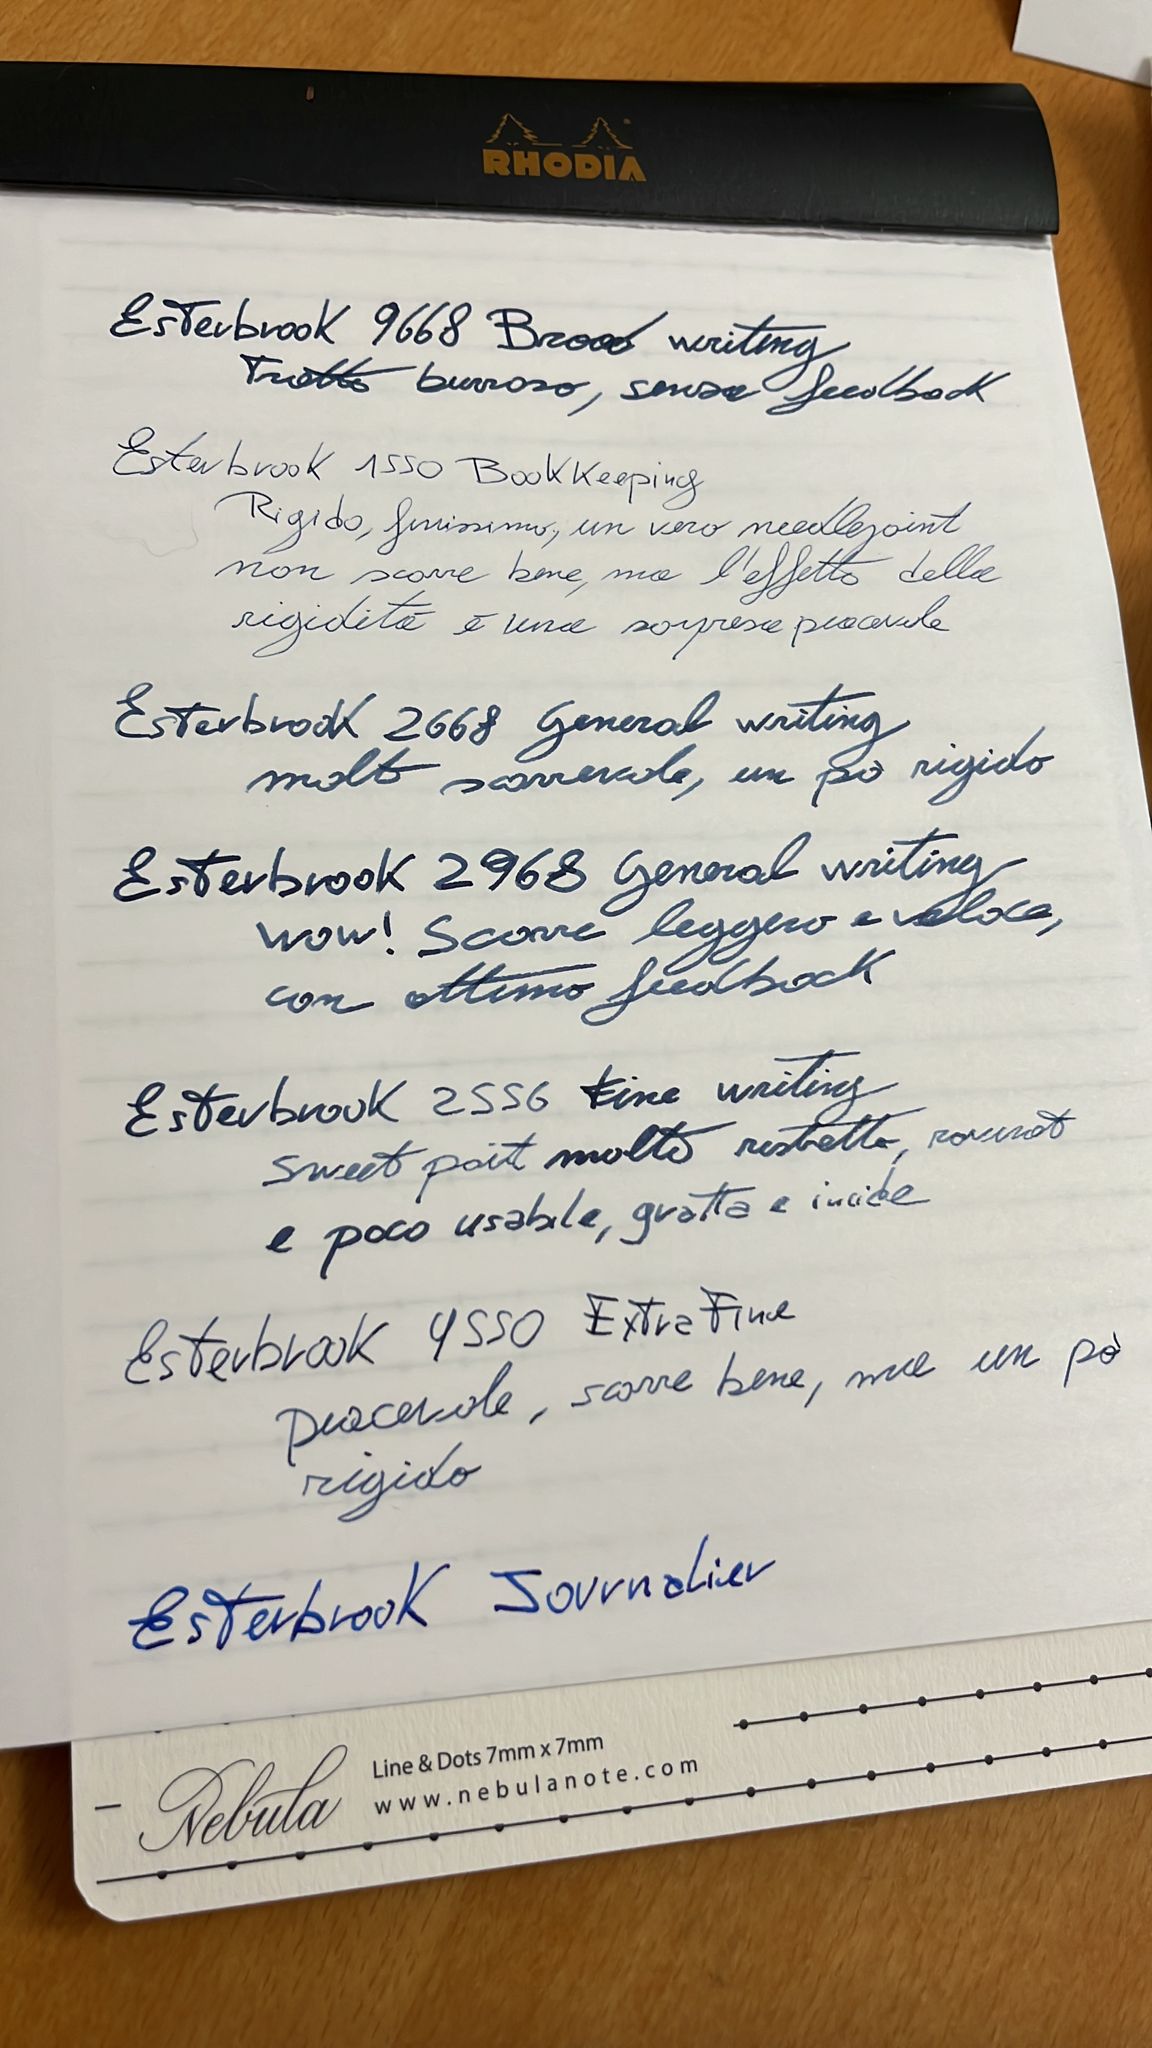 RHODIA
Esterbrook 9668 Broad writing
Tratto burroso, senza feedback
Esterbrook 1550 Bookkeeping
Rigido, finissimo, un vero needlepoint
non scorre bene, ma l'effetto della
rigidità è una sorpresa piacevole
Esterbrook 2668 General writing
molto scorrevole, un pò rigido
Esterbrook 2968 General writing
wow! Scorre leggero e veloce,
con ottimo feedback
Esterbrook 2556 Fine writing
sweet poit molto ristretto, rovinato
e poco usabile, gratta e incide
Esterbrook 4550 Extra Fine
piacevole, scorre bene, ma un pò
rigido
Esterbrook Journalier
Nebula
Line & Dots 7mm x 7mm
www.nebulanote.com